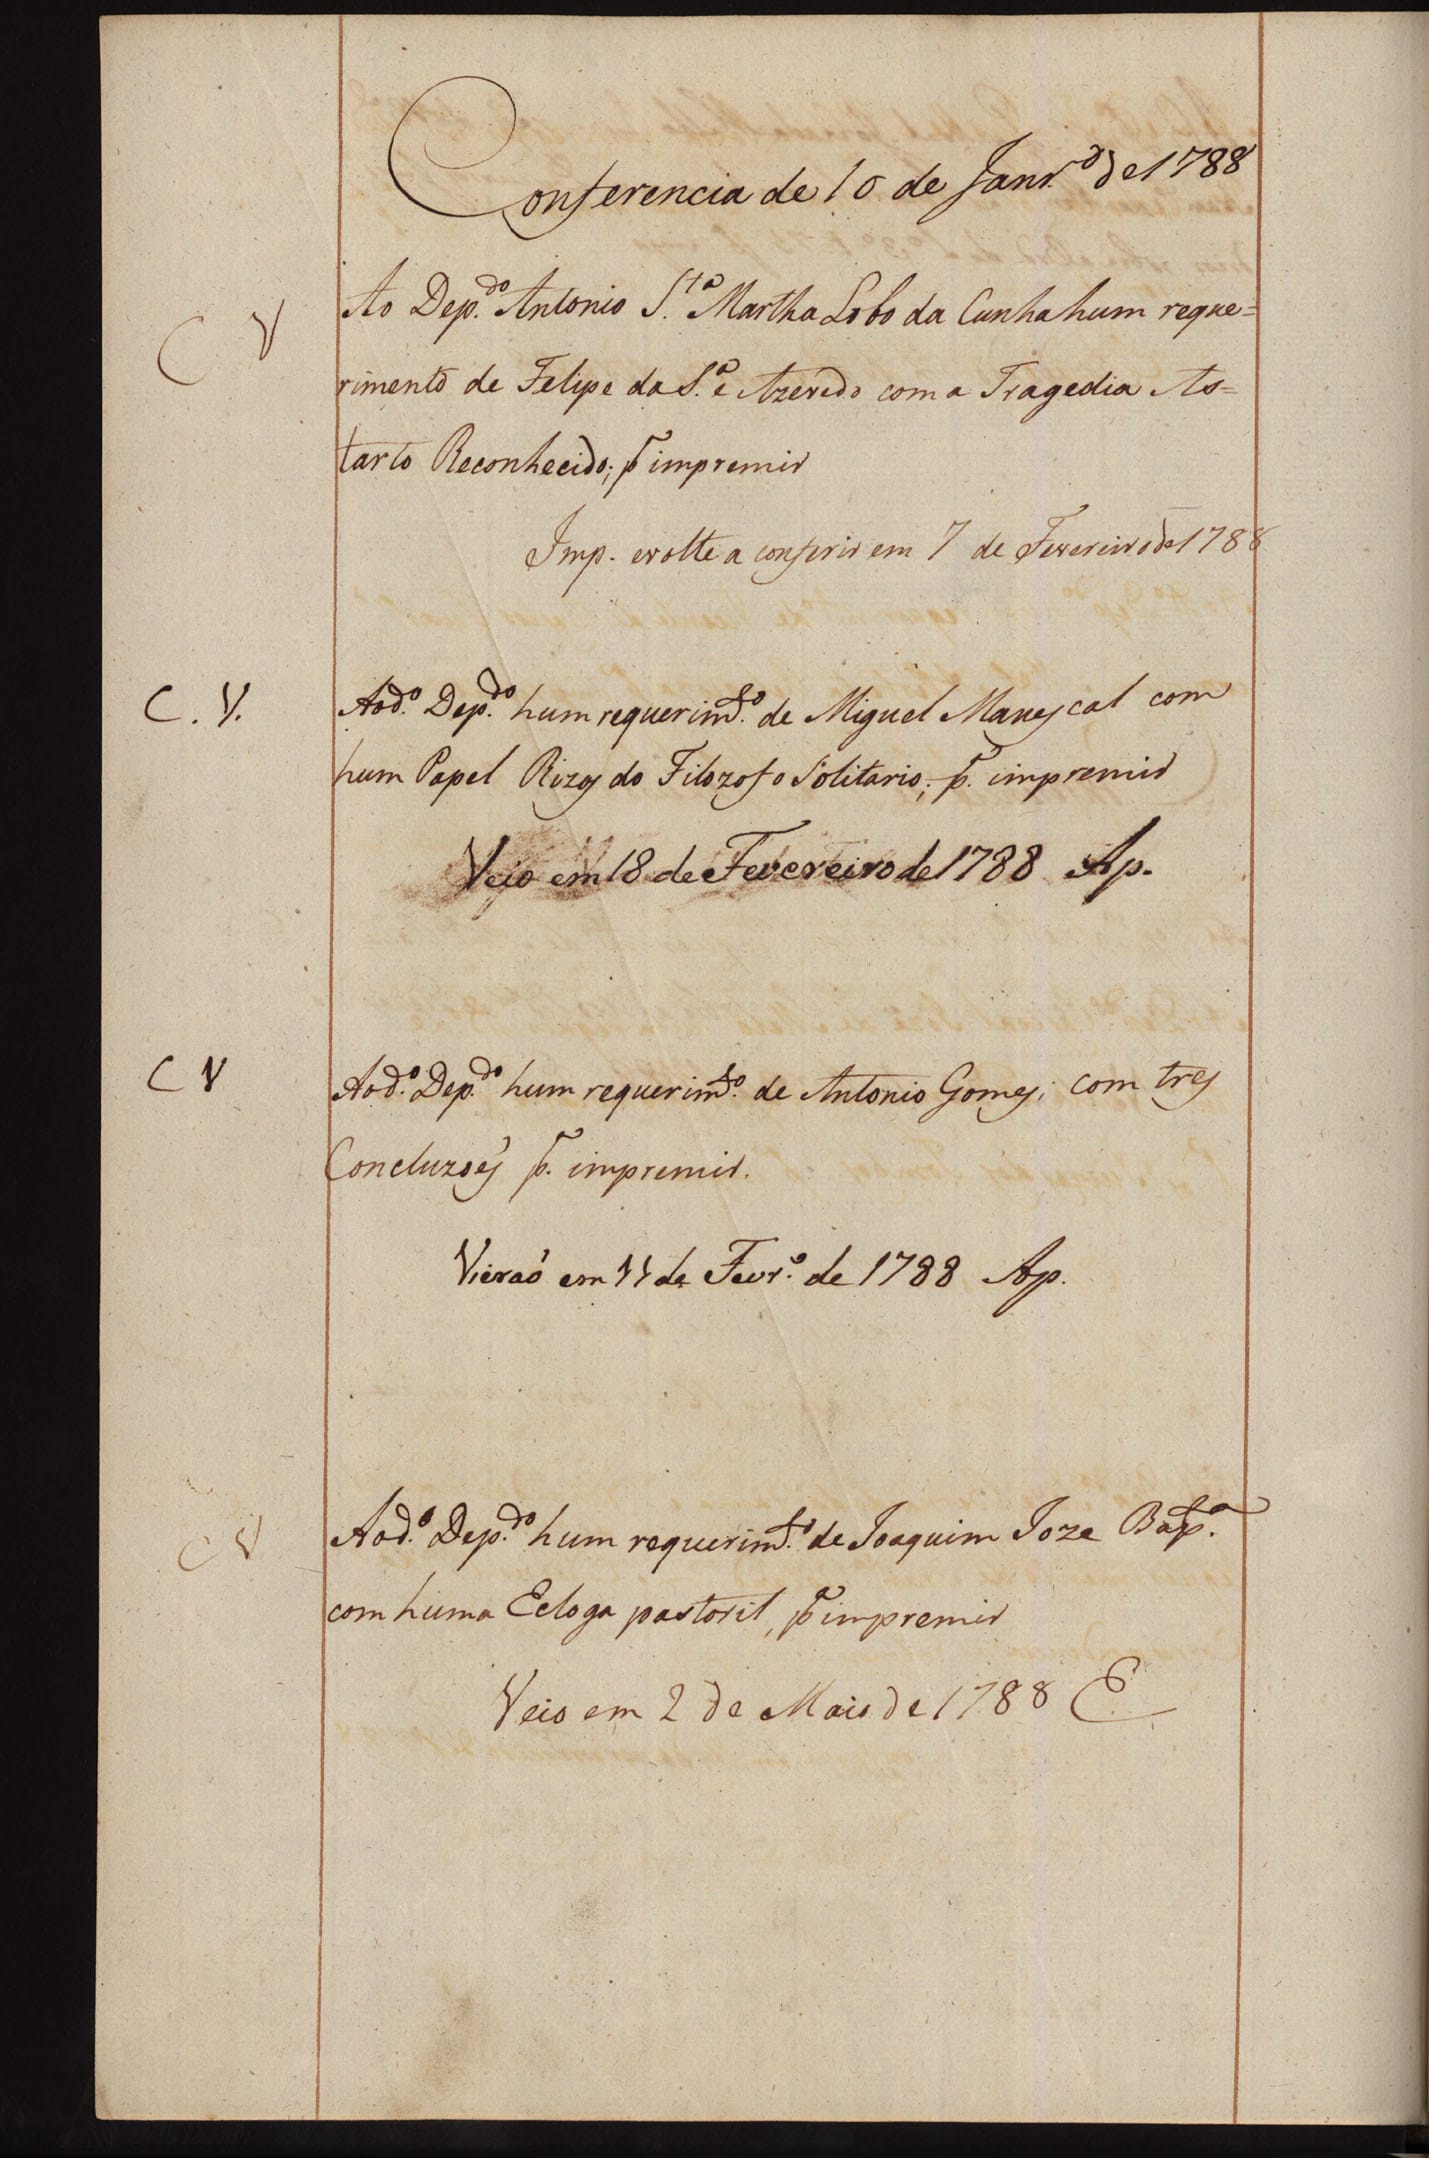 Conferencia de 10 de Janr.º de 1788
C V
Ao Dep.do Antonio S.ta Martha Lobo da Cunha hum reque=
rimento de Felipe da S.a e Azeredo com a Tragedia As=
tarto Reconhecido; p.a impremir
Imp. e volte a conferir em 7 de Fevereiro de 1788
C. V.
Ao d.º Dep.do hum requerim.to de Miguel Manescal com
hum Papel Rizos do Filozofo Solitario; p.a impremir
Veio em 18 de Fevereiro de 1788 Ap.
C V
Ao d.º Dep.do hum requerim.to de Antonio Gomes; com tres
Concluzoẽs p.a impremir.
Vieraõ em 11 de Fevr.º de 1788 Ap.
C V
Ao d.º Dep.do hum requerim.to de Joaquim Joze Bap.ta
com huma Ecloga pastoril, p.a impremir
Veio em 2 de Maio de 1788 E